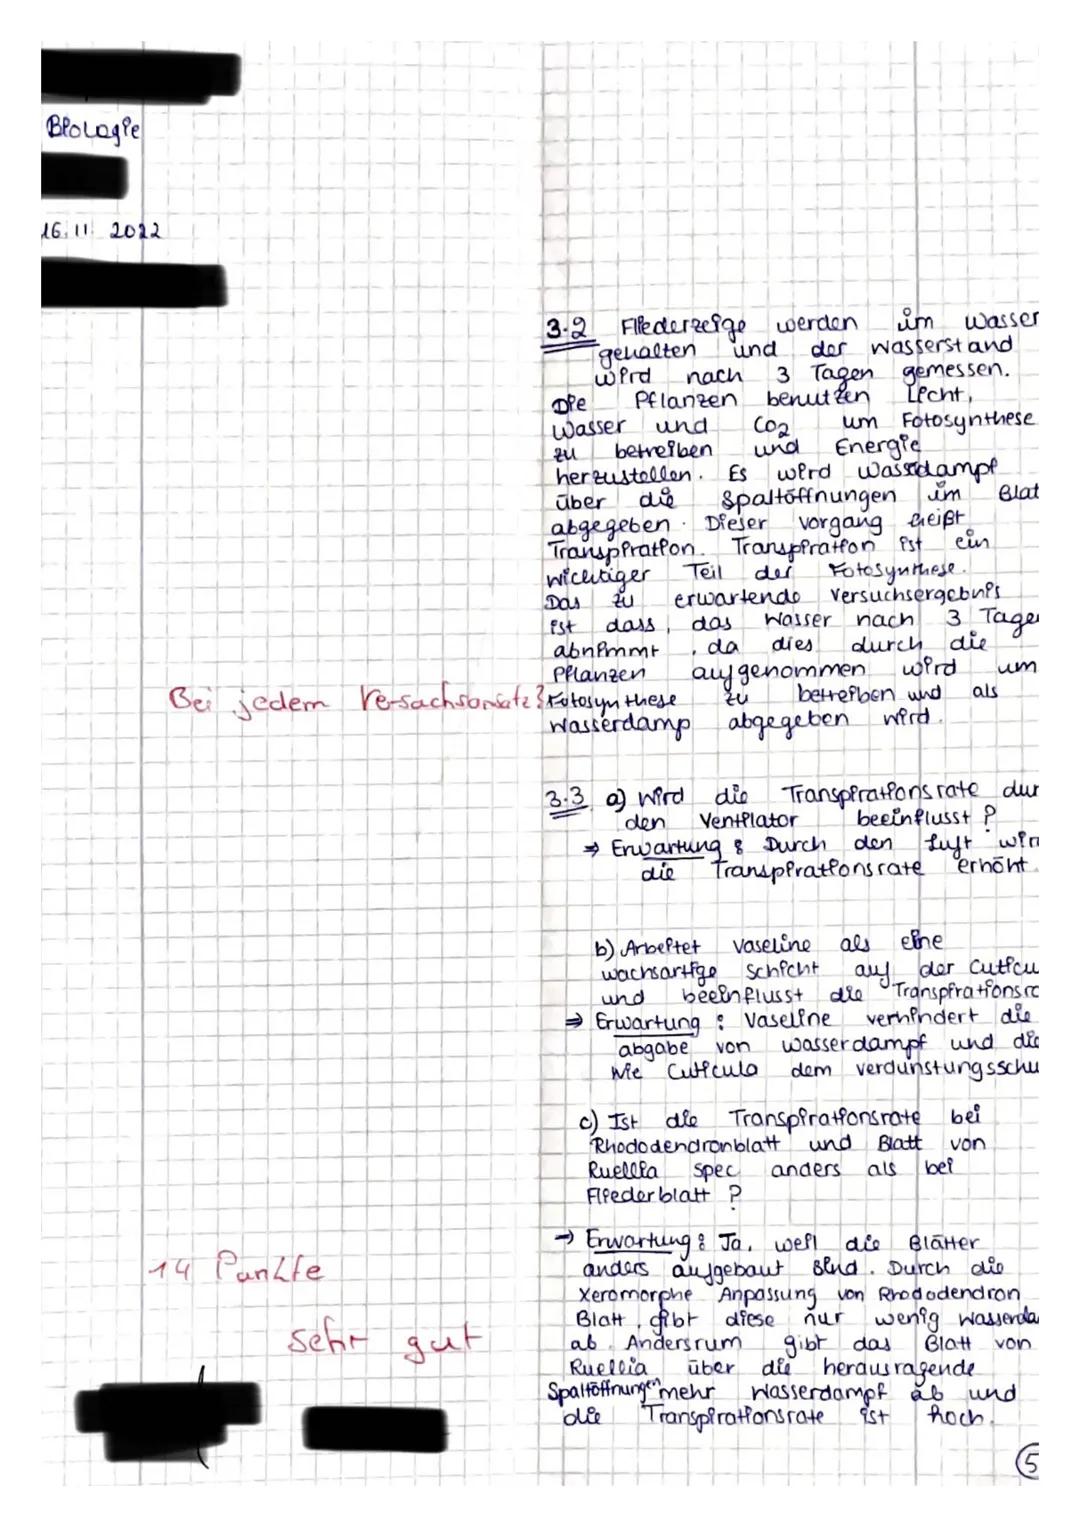 Biologie
16.11. 2022
3.2 Fliederzeige werden im Wasser
gehalten und der Wasserstand
wird nach 3 Tagen gemessen.
Die Pflanzen benutzen Licht,
Wasser und CO2 um Fotosynthese
zu betreiben und Energie
herzustellen. Es wird Wassdampf
über die Spaltöffnungen im Blat
abgegeben. Dieser Vorgang heißt
Transpiration. Transpiration ist ein
wichtiger Teil der Fotosynthese.
Das zu erwartende Versuchsergebnis
ist dass, das Wasser nach 3 Tage
abnimmt, da dies durch die
Pflanzen aufgenommen wird um
Bei jedem Versuchsansatz? Fotosynthese zu betreiben und als
Wasserdamp abgegeben wird.
3.3 a) Wird die Transpirationsrate dur
den Ventilator beeinflusst?
⇒ Erwartung: Durch den Luft wir
die Transpirationsrate erhöht.
b) Arbeitet Vaseline als eine
wachsartige Schicht auf der Cuticu
und beeinflusst die Transpirationsra
⇒ Erwartung: Vaseline verhindert die
abgabe von Wasserdampf und die
wie Cuticula dem verdunstungsschu
c) Ist die Transpirationsrate bei
Rhododendronblatt und Blatt von
Ruellia spec anders als bei
Fliederblatt?
→ Erwartung: Ja, weil die Blätter
anders aufgebaut sind. Durch die
Xeromorphe Anpassung von Rhododendron
Blatt, gibt diese nur wenig Wasserda
ab. Andersrum gibt das Blatt von
Ruellia über die herausragende
Spaltöffnungen mehr Wasserdampf ab und
die Transpirationsrate ist hoch.
14 Punkte
sehr gut
5